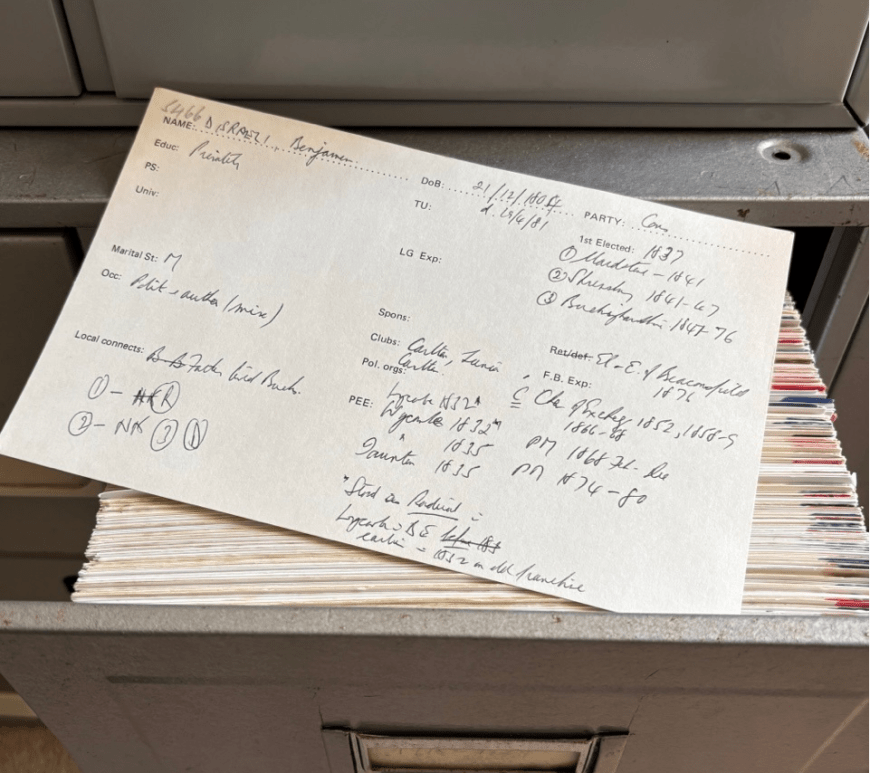 5466
NAME: DISRAELI, Benjamin
Educ: Privately
PS:
Univ:
DoB: 21/12/1804
d. 19/4/81
TU:
PARTY: Cons
1st Elected: 1837
① Maidstone - 1841
② Shrewsbury 1841-47
③ Buckinghamshire 1847-76
Marital St: M
LG Exp:
Occ: Polit & author (mix)
Spons:
Clubs: Carlton, Junior
Carlton
Pol. orgs:
Ret/def: El - E. of Beaconsfield
1876
Local connects: Father lived Bucks.
① - R
② - NK ③ D
F.B. Exp:
C Chr of Excheq 1852, 1858-9
1866-68
PM 1868 Dec
PM 1874-80
PEE: Wycombe 1832*
Wycombe 1832*
" 1835
Taunton 1835
*Stood as Radical :
Wycombe : BE
earlier = 1832 on old franchise